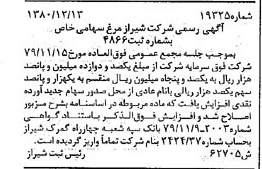 شماره ۱۹۳۲۵ ۱۳۸۰/۱۲/۱۳
آگهی رسمی شرکت شیراز مرغ سهامی خاص
بشماره ثبت ۴۸۶۶
بموجب جلسه مجمع عمومی فوق العاده مورخ ۷۹/۱۱/۱۵
شرکت فوق سرمایه شرکت از مبلغ یکصد و دوازده میلیون و پانصد
هزار ریال به یکصد و پنجاه میلیون ریال منقسم به یکهزار و پانصد
سهم یکصد هزار ریالی بانام عادی از محل صدور سهام جدید آورده
نقدی افزایش یافت که ماده مربوطه در اساسنامه بشرح مزبور
اصلاح شد و افزایش فوق الذکر باستناد گواهی
شماره ۲۰۰۳-۷۹/۱۱/۹ بانک سپه شعبه چهارراه گمرک شیراز
بحساب شماره ۲۴۲۴/۳۷ بنام شرکت تماماً واریز گردیده است.
۶۲۷۰۵/ش رئیس ثبت شیراز